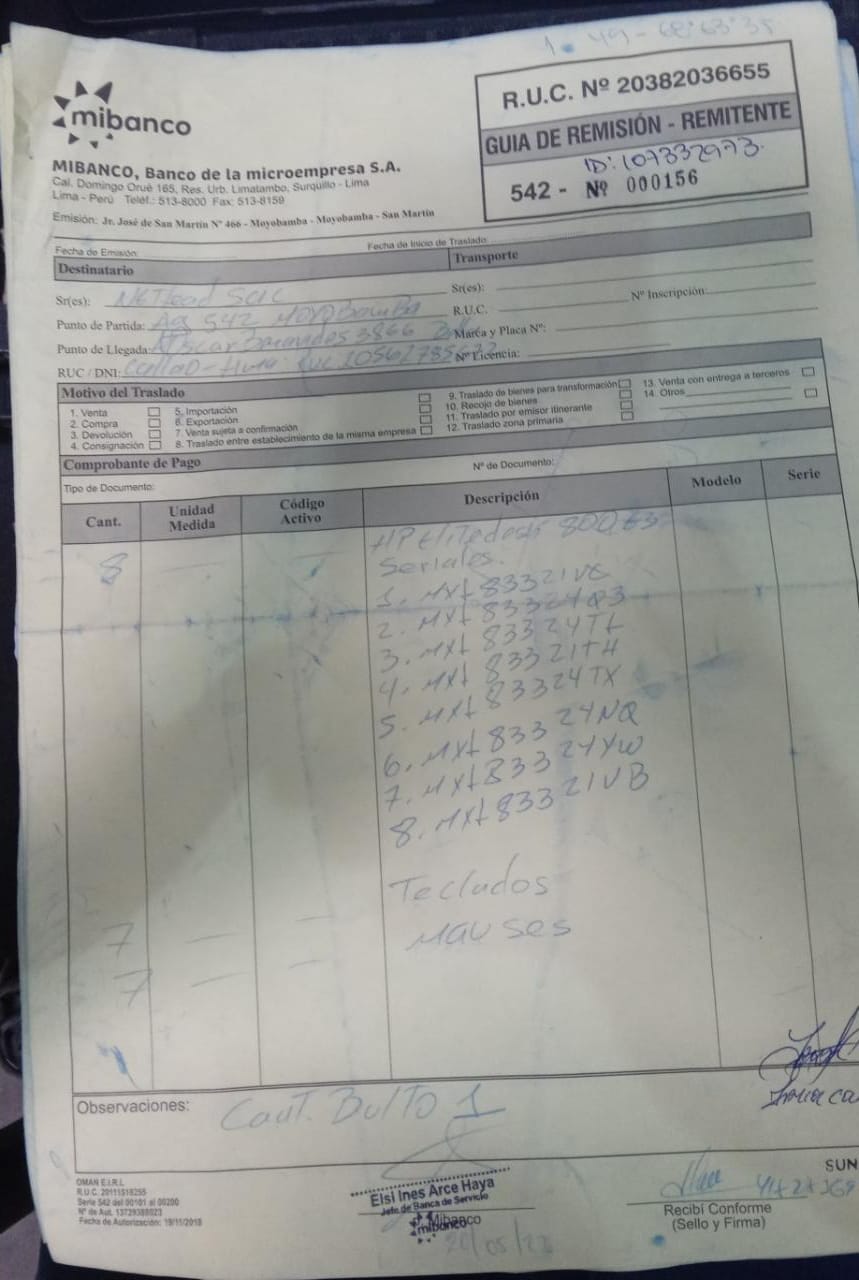 mibanco
MIBANCO, Banco de la microempresa S.A.
Cal. Domingo Orué 165, Res. Urb. Limatambo, Surquillo - Lima
Lima - Perú Teléf.: 513-8000 Fax: 513-8159
Emisión: Jr. José de San Martín Nº 466 - Moyobamba - Moyobamba - San Martín
R.U.C. Nº 20382036655
GUIA DE REMISIÓN - REMITENTE
ID: 107332973
542 - Nº 000156
Fecha de Emisión:
Fecha de Inicio de Traslado:
Destinatario
Transporte
Sr(es):
Sr(es):
Punto de Partida: Ag 542 Moyobamba
R.U.C.
Nº Inscripción:
Punto de Llegada: 3866
Marca y Placa Nº:
RUC / DNI: Callao - Ruc
Nº Licencia:
Motivo del Traslado
1. Venta
2. Compra
3. Devolución
4. Consignación
5. Importación
6. Exportación
7. Venta sujeta a confirmación
8. Traslado entre establecimiento de la misma empresa
9. Traslado de bienes para transformación
10. Recojo de bienes
11. Traslado por emisor itinerante
12. Traslado zona primaria
13. Venta con entrega a terceros
14. Otros
Comprobante de Pago
Tipo de Documento:
Nº de Documento:
Cant.
Unidad Medida
Código Activo
Descripción
Modelo
Serie
8 HP Elitedesk 800 G3
Seriales.
1. MXL83321VC
2. MXL83324Q3
3. MXL83324TL
4. MXL83321TH
5. MXL83324TX
6. MXL83324NQ
7. MXL83324YW
8. MXL83321VB
7 Teclados
7 Mauses
Observaciones: Cant. Bulto 1
OMAN E.I.R.L
R.U.C. 20111518255
Serie 542 del 00101 al 00200
Nº de Aut. 13729388023
Fecha de Autorización: 19/11/2018
Elsi Ines Arce Haya
Jefe de Banca de Servicio
mibanco
Mibanco
Recibí Conforme
(Sello y Firma)
SUN